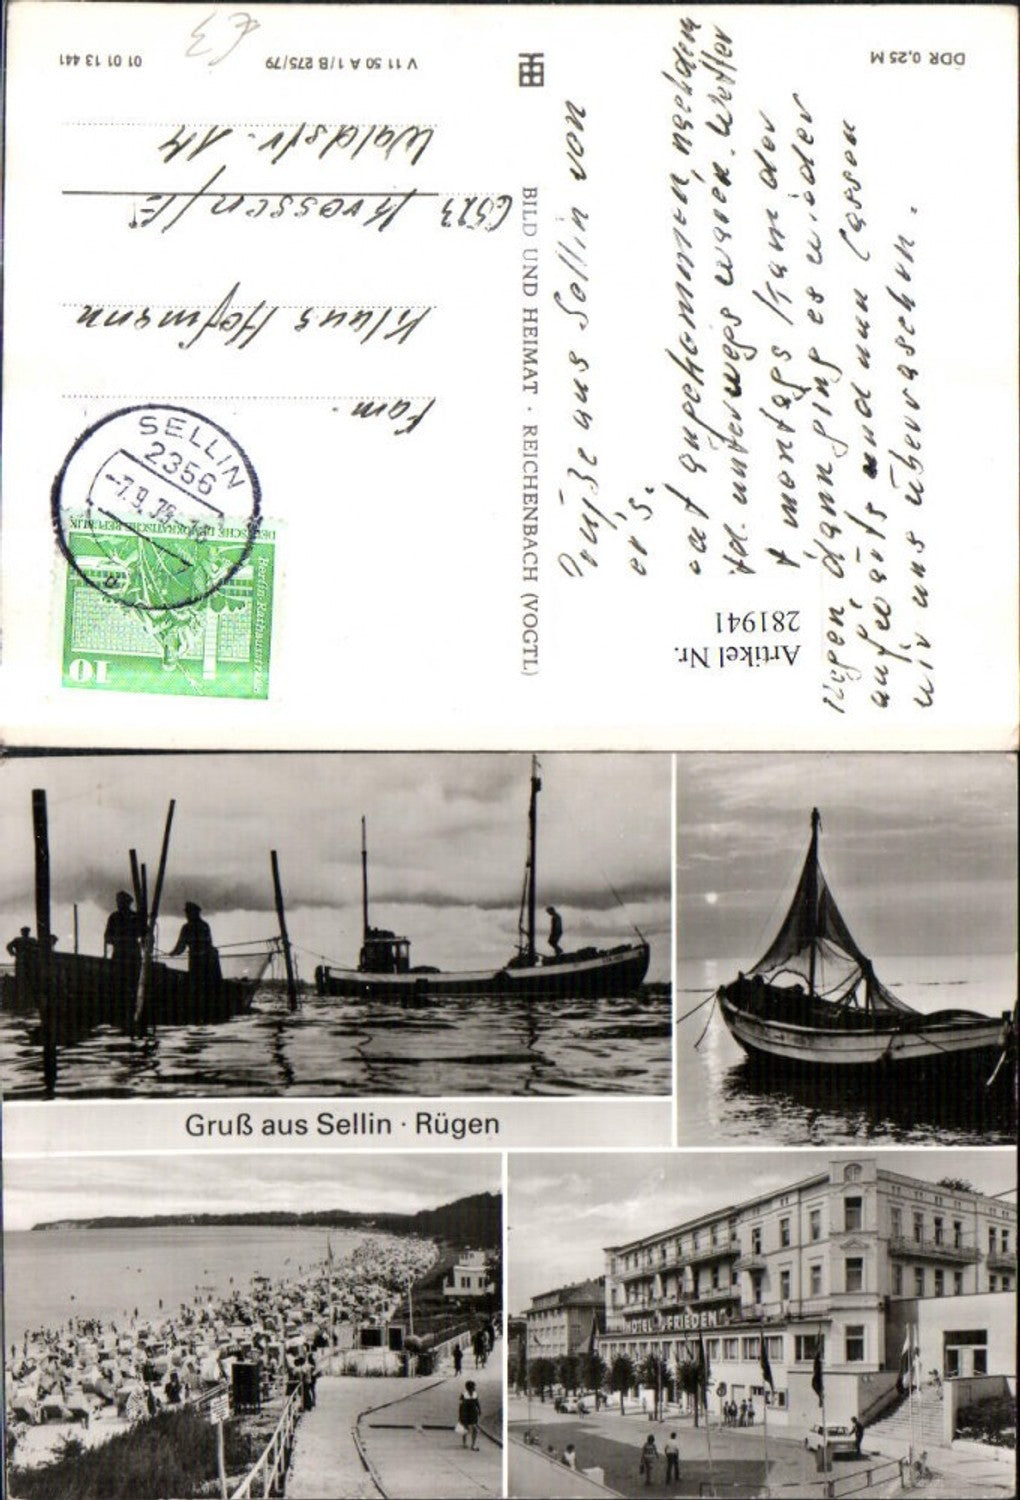 DDR 0,25 M
V 11 50 A 1/B 275/79
01 01 13 441
BILD UND HEIMAT · REICHENBACH (VOGTL)
Artikel Nr.
281941
aus Sellin von
gut angekommen, nachdem
unterwegs waren. Wetter
montags kam der
Regen, dann ging es wieder
aufwärts und nun lassen
wir uns überraschen.
Fam.
Klaus Hofmann
6523 Krossen/E
Waldstr. 14
SELLIN
2356
-7.9.79
DEUTSCHE DEMOKRATISCHE REPUBLIK
Berlin-Rathausstraße
10
Gruß aus Sellin · Rügen
HOTEL FRIEDEN